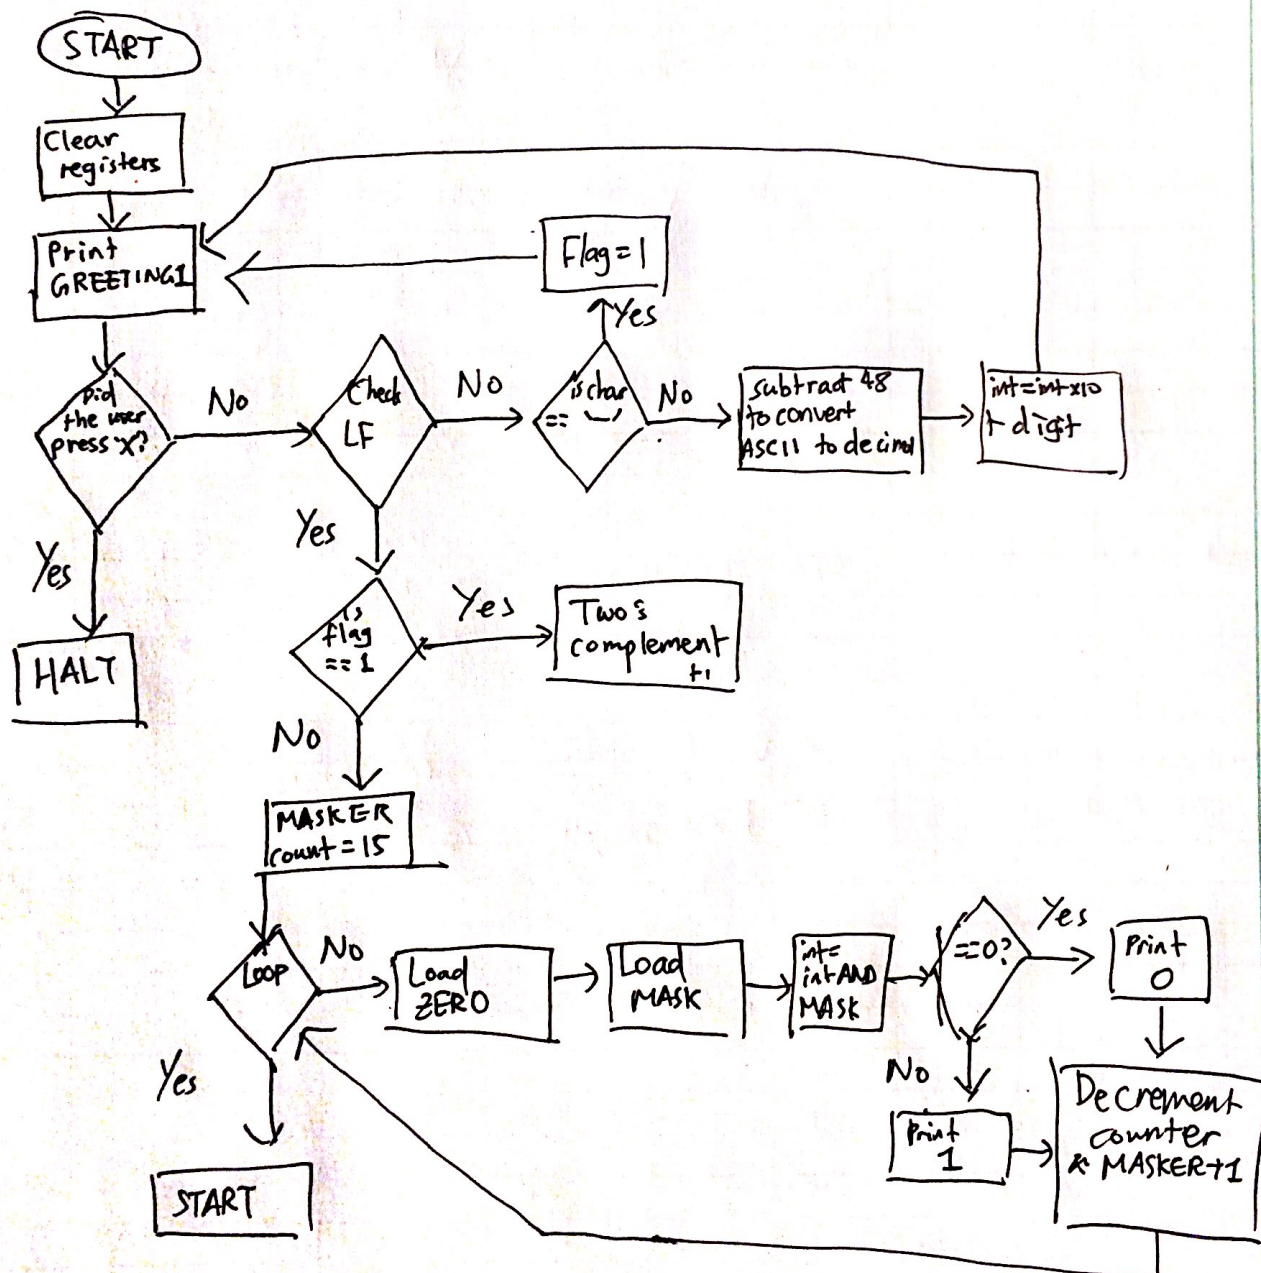 START
Clear
registers
Print
GREETING1
Flag=1
Yes
Did
the user
press 'X'?
No
Check
LF
No
is char
== '-'
No
subtract 48
to convert
ASCII to decimal
int=int x10
+ digit
Yes
HALT
Yes
is
flag
==1
Yes
Two's
complement
+1
No
MASKER
count=15
Loop
No
Load
ZERO
Load
MASK
int=
int AND
MASK
==0?
Yes
Print
0
No
Print
1
Decrement
counter
& MASKER+1
Yes
START